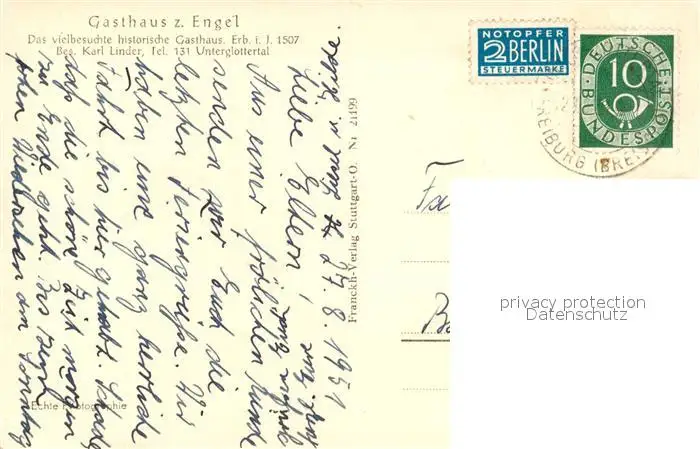 Gasthaus z. Engel
Das vielbesuchte historische Gasthaus. Erb. i. J. 1507
Bes. Karl Linder, Tel. 131 Unterglottertal
NOTOPFER
2 BERLIN
STEUERMARKE
DEUTSCHE
10
BUNDESPOST
FREIBURG (BREI
27. 8. 1951
Liebe Eltern!
Aus einer fröhlichen Runde
senden wir Euch die
letzten Feriengrüße. Wir
haben eine ganz herrliche
Fahrt bis hier gehabt. Schade
daß die schöne Zeit morgen
zu Ende geht. Bis zum
frohen Wiedersehen am Sonntag
Franckh-Verlag Stuttgart-O. Nr. 21199
Echte Photographie
Fa
Ba
privacy protection
Datenschutz